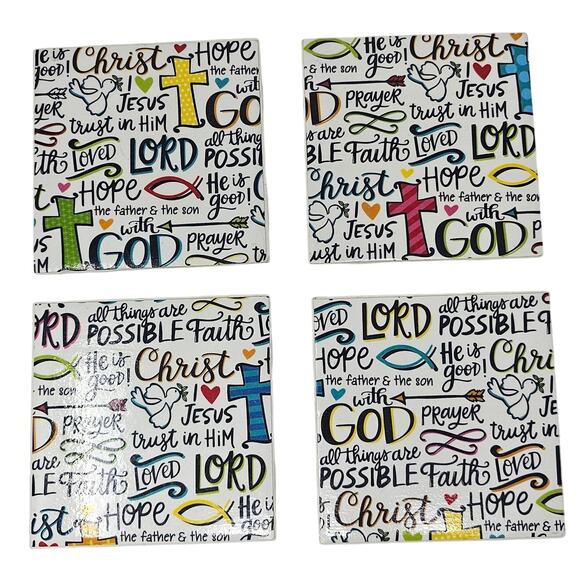 He is good! Christ HOPE
the father
JESUS with
trust in HiM GOD
all things
Faith LOVED LORD POSSIB
HOPE He is good!
the father & the son
with
GOD PRAYER
He is good! Christ
& the son
PRAYER JESUS
trust in HiM
are
BLE Faith LOVED LORD
Christ HOPE
the father & the son
JESUS with
trust in HiM GOD
LORD all things are
POSSIBLE Faith
He is good! Christ
& the son
PRAYER JESUS
trust in HiM
are
LE Faith LOVED LORD
HOPE He is good!
the father & the son
LOVED LORD all things are
POSSIBLE
HOPE He is good! Chri
the father & the son
with JE
GOD PRAYER trust in
all things are
POSSIBLE Faith LOVED
Christ HOPE
the father & the son